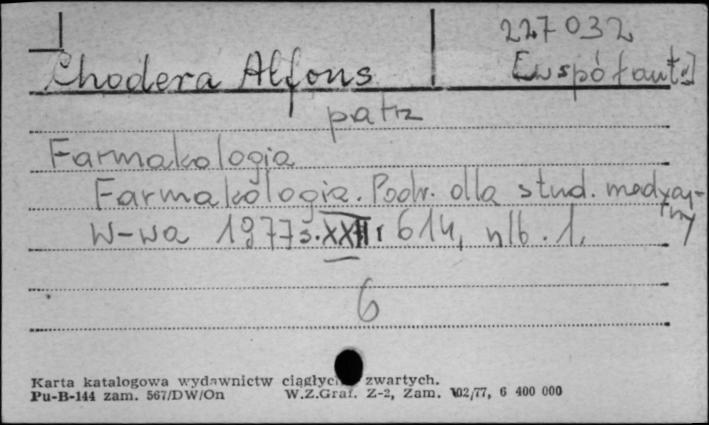 227032
Chodera Alfons [współaut.]
patrz
Farmakologia
Farmakologia. Podr. dla stud. medycy-
ny
W-wa 1977 s. XXII, 614, nlb. 1.
6
Karta katalogowa wydawnictw ciągłych zwartych.
Pu-B-144 zam. 567/DW/On W.Z.Graf. Z-2, Zam. 102/77, 6 400 000